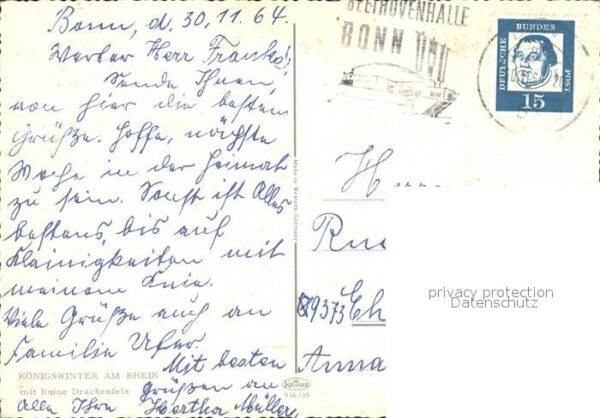 Bonn, d. 30.11.64.
Werter Herr Franke!,
Sende Ihnen,
von hier die besten
Grüße. Hoffe, nächste
Woche in der Heimat
zu sein. Sonst ist Alles
bestens, bis auf
Kleinigkeiten mit
meinem Knie.
Viele Grüße auch an
Familie Ufer.
Mit besten
Grüßen an
Alle Ihre Hertha Müller,
KÖNIGSWINTER AM RHEIN
mit Ruine Drachenfels
Made in Western Germany
936/35
BEETHOVENHALLE
BONN
DEUTSCHE BUNDES POST
15
H
Rud
9373 Eh
Anna
privacy protection
Datenschutz